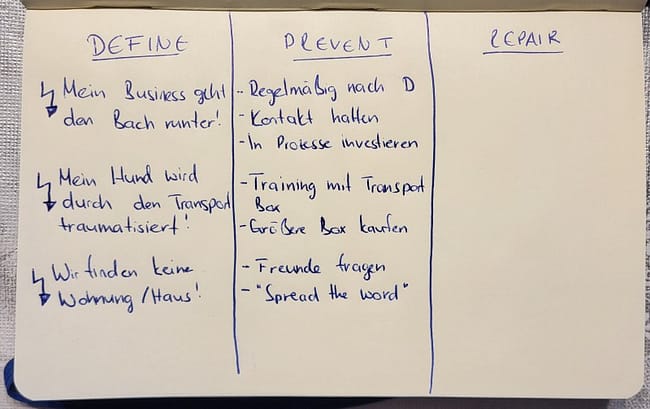 DEFINE
Mein Business geht
den Bach runter!
Mein Hund wird
durch den Transport
traumatisiert!
Wir finden keine
Wohnung/Haus!
PREVENT
- Regelmäßig nach D
- Kontakt halten
- In Prozesse investieren
- Training mit Transport
Box
- Größere Box kaufen
- Freunde fragen
- "Spread the word"
REPAIR